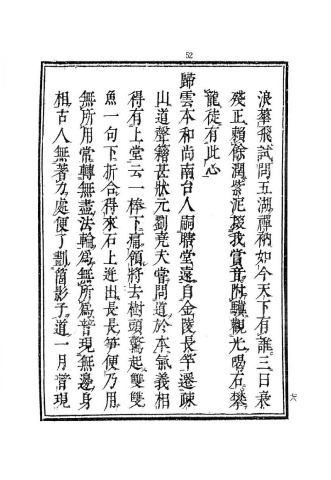 52
浪華飛試問五湖禪衲如今天下有誰三日衰
殘正賴餘潤紫泥援我賞音附驥觀光喝石攀
龍徒有此心
歸雲本和尚南台人嗣瞎堂遠自金陵長竿遷疎
山道聲籍甚狀元劉堯夫當問道於本氣義相
得有上堂云一棒下痛領將去樹頭驚起雙雙
魚一句下折合得來石上迸出長長筍便乃用
無所用常轉無盡法輪為無所為普現無邊身
相古人無著力處便了剴箇影子道一月普現
六